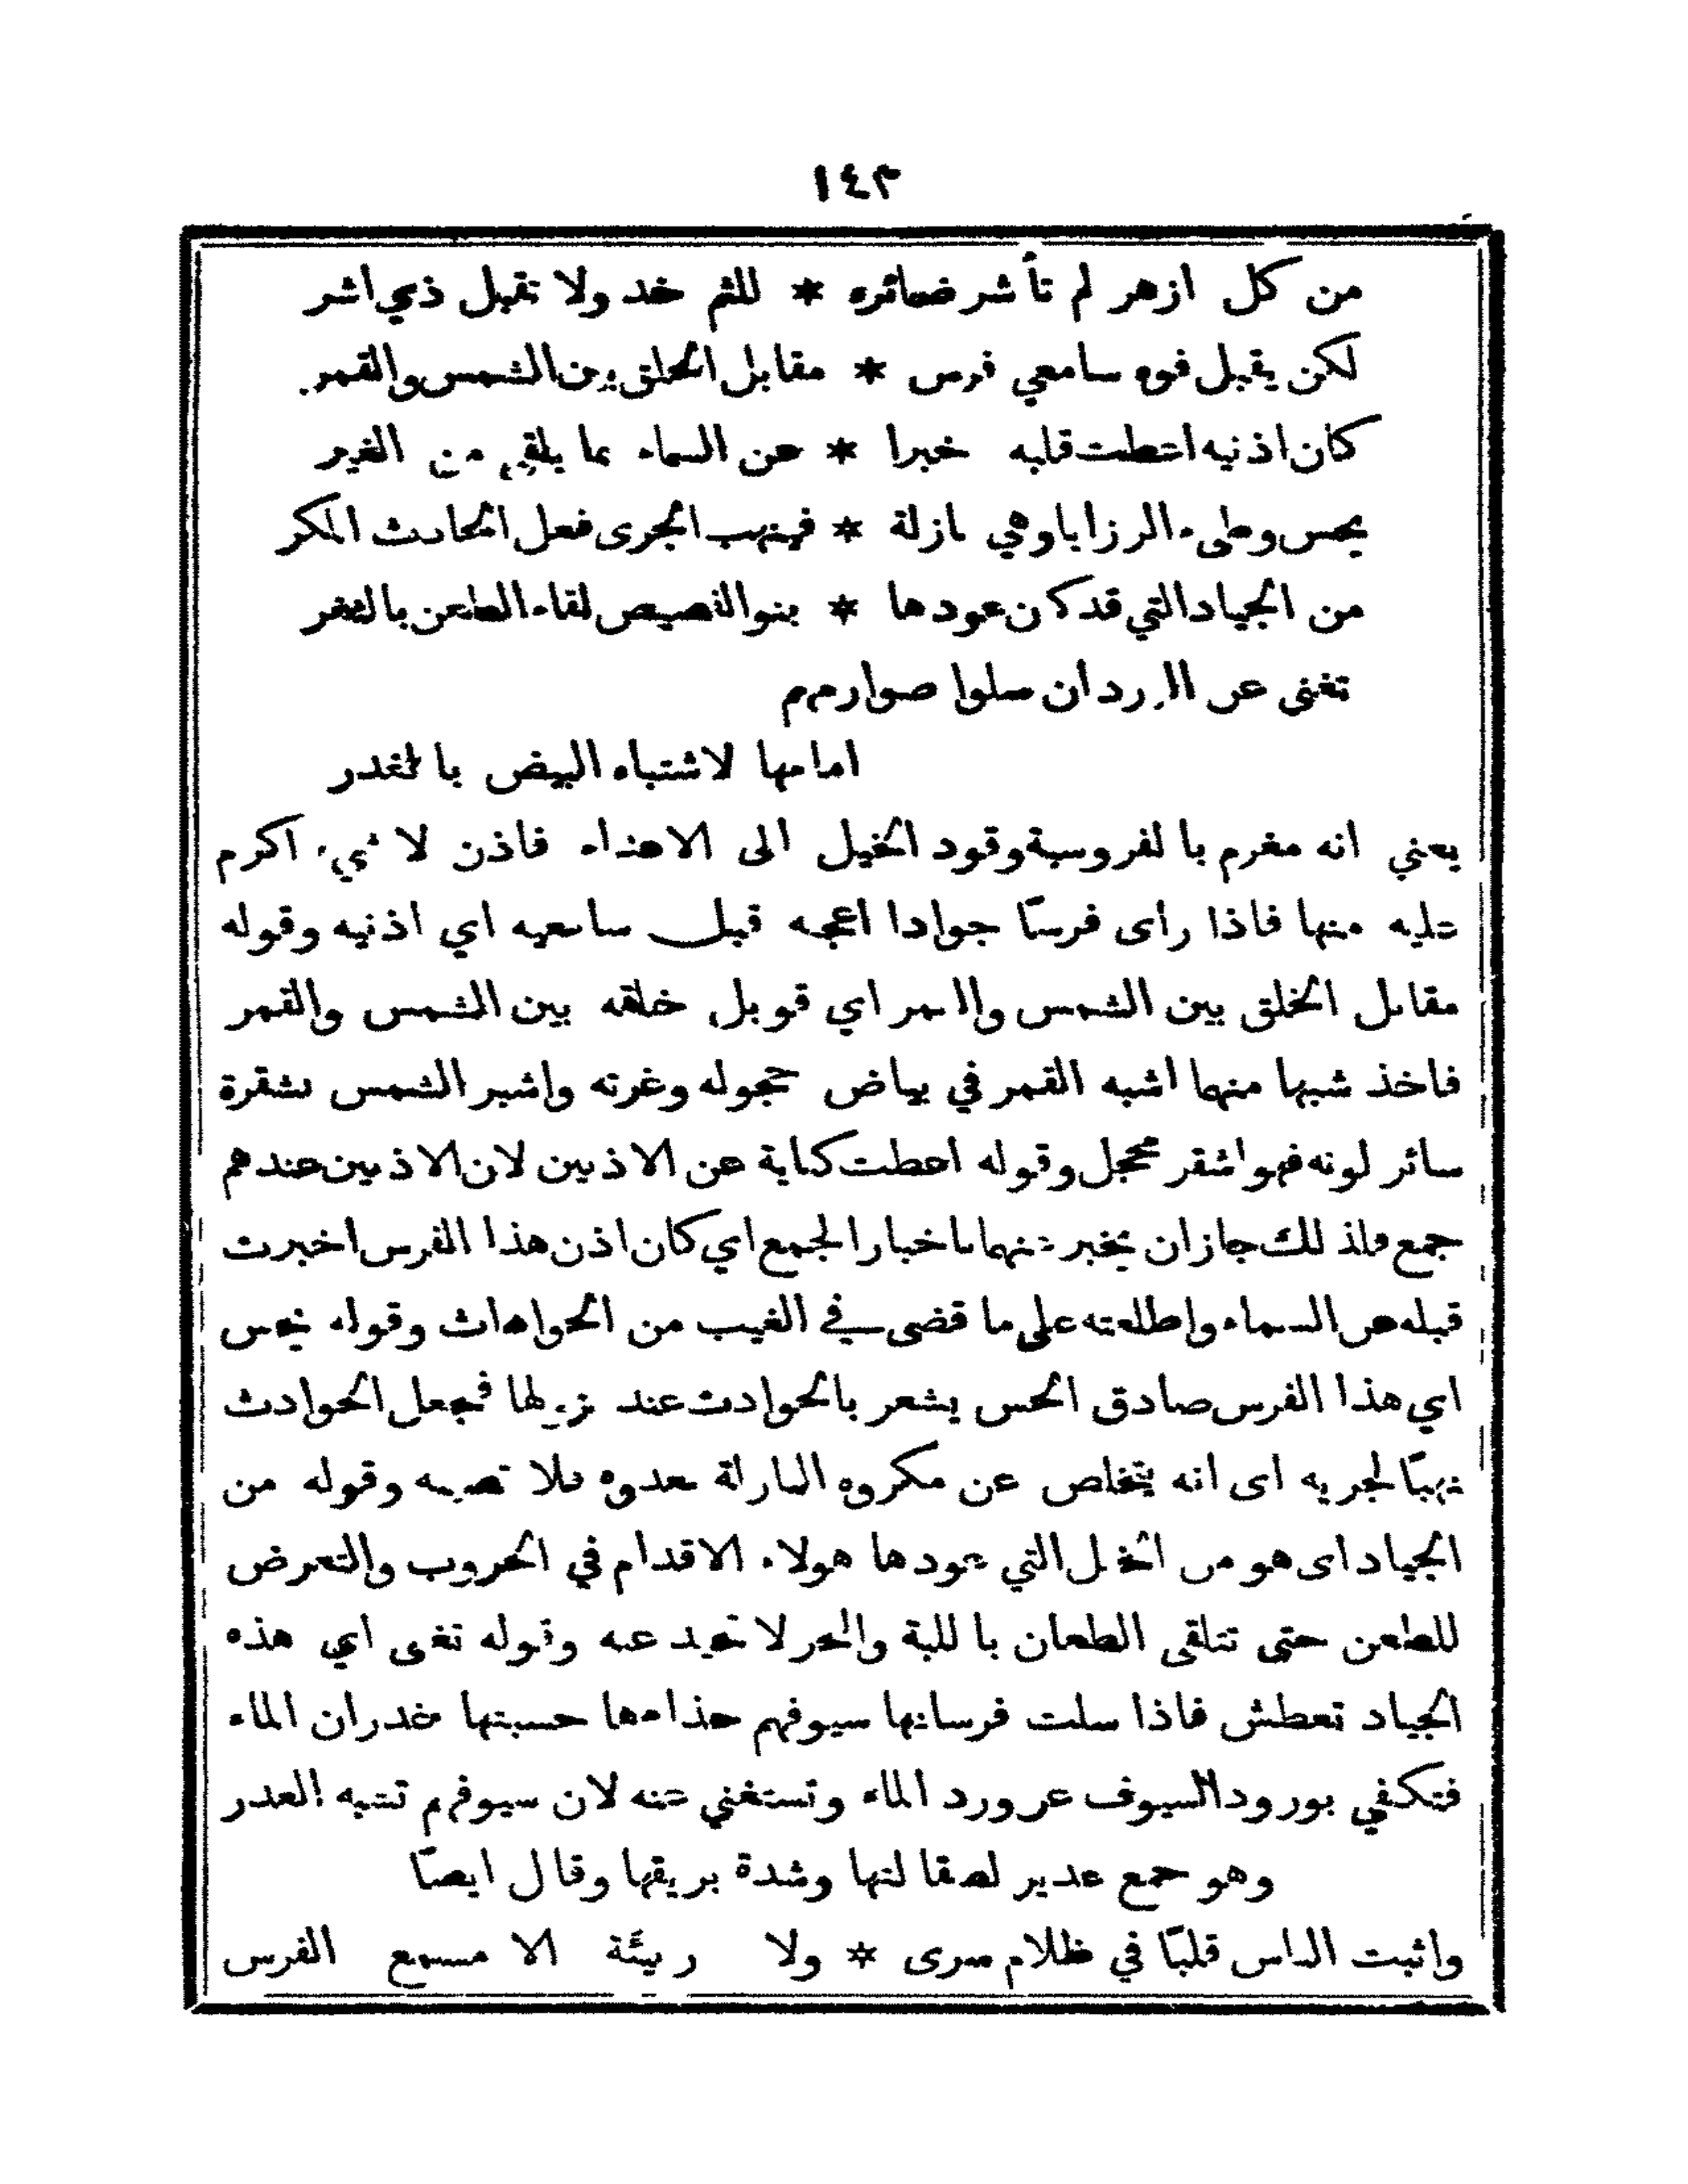 ١٤٣
من كل ازهر لم تأشر ضمائره * للثم خد ولا تقبل ذي اشر
لكن يقبل فوه سامعي فرس * مقابل الخلق بين الشمس والقمر
كان اذنيه اعطت قلبه خبرا * عن السماء بما يلقى من الغير
يحس وطىء الرزايا وهي نازلة * فينهب الجرى فعل الحادث المكر
من الجياد التي قد كان عودها * بنو الفصيص لقاء الطعن بالثغر
تغنى عن الورد ان سلوا صوارمهم
امامها لاشتباه البيض بالغدر
يعني انه مغرم بالفروسية وقود الخيل الى الاعداء فاذن لا شيء اكرم
عليه منها فاذا رأى فرسًا جوادا اعجبه قبل سامعيه اي اذنيه وقوله
مقابل الخلق بين الشمس والقمر اي قوبل خلقه بين الشمس والقمر
فاخذ شبها منهما اشبه القمر في بياض حجوله وغرته واشبه الشمس بشقرة
سائر لونه فهو اشقر محجل وقوله اعطت كناية عن الاذنين لان الاذنين عندهم
جمع فلذلك جاز ان يخبر عنهما باخبار الجمع اي كان اذن هذا الفرس اخبرت
قبله عن السماء واطلعته على ما قضى في الغيب من الحوادث وقوله يحس
اي هذا الفرس صادق الحس يشعر بالحوادث عند نزولها فجعل الحوادث
نهبًا لجريه اى انه يتخلص عن مكروه النازلة بعدوه فلا تصيبه وقوله من
الجياد اى هو من الخيل التي عودها هولاء الاقدام في الحروب والتعرض
للطعن حتى تتلقى الطعان باللبة والنحر لا تحيد عنه وقوله تغنى اي هذه
الجياد تعطش فاذا سلت فرسانها سيوفهم حذاءها حسبتها غدران الماء
فتكفي بورود السيوف عن ورد الماء وتستغني عنه لان سيوفهم تشبه الغدر
وهو جمع غدير لصقالتها وشدة بريقها وقال ايضًا
واثبت الناس قلبًا في ظلام سرى * ولا ربيئة الا مسمع الفرس